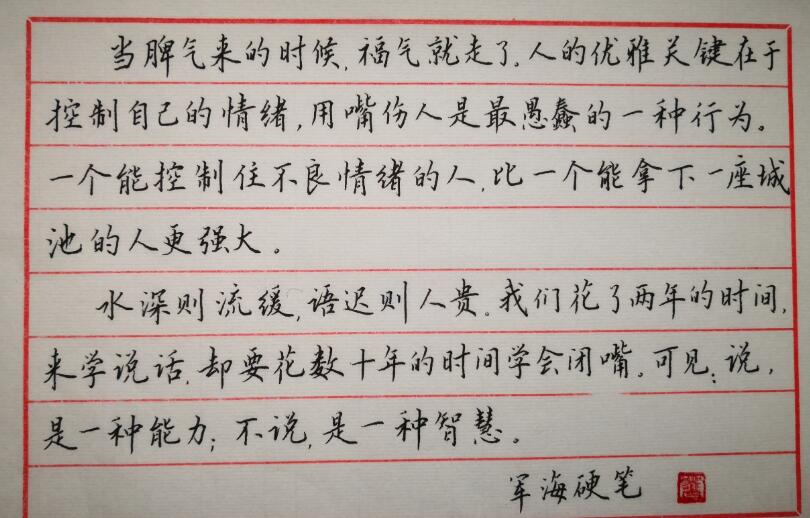 当脾气来的时候,福气就走了,人的优雅关键在于
控制自己的情绪,用嘴伤人是最愚蠢的一种行为。
一个能控制住不良情绪的人,比一个能拿下一座城
池的人更强大。
水深则流缓,语迟则人贵。我们花了两年的时间,
来学说话,却要花数十年的时间学会闭嘴。可见:说,
是一种能力;不说,是一种智慧。
军海硬笔